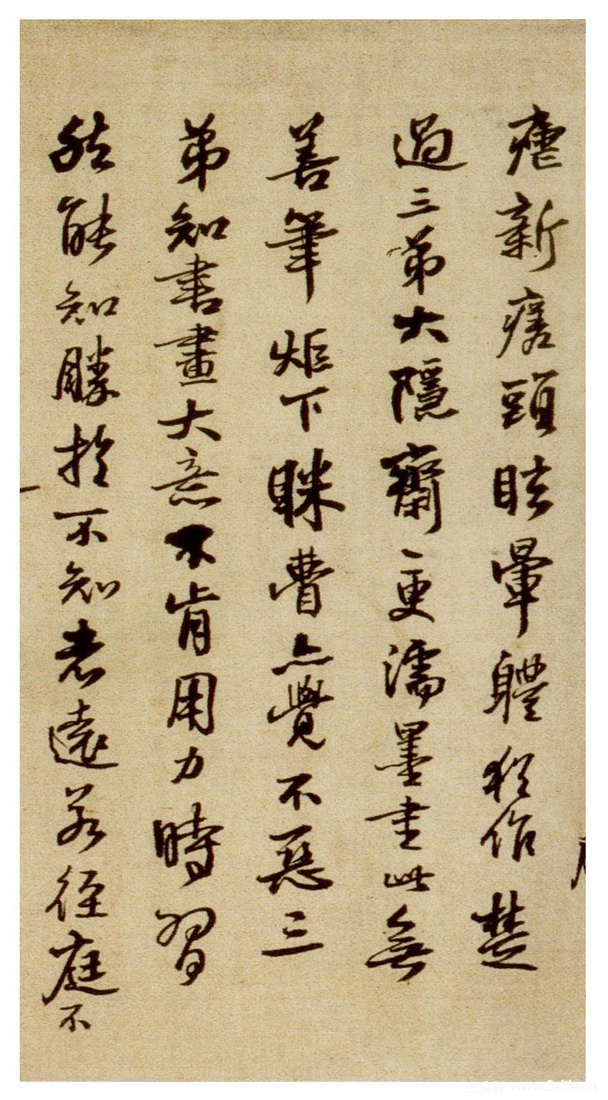 瘧新瘥頭眩暈體猶作楚
過三弟大隱齋更濡墨書此無
善筆炬下眯瞢亦覺不惡三
弟知書畫大意不肯用力時習
然能知勝於不知者遠若徑庭不